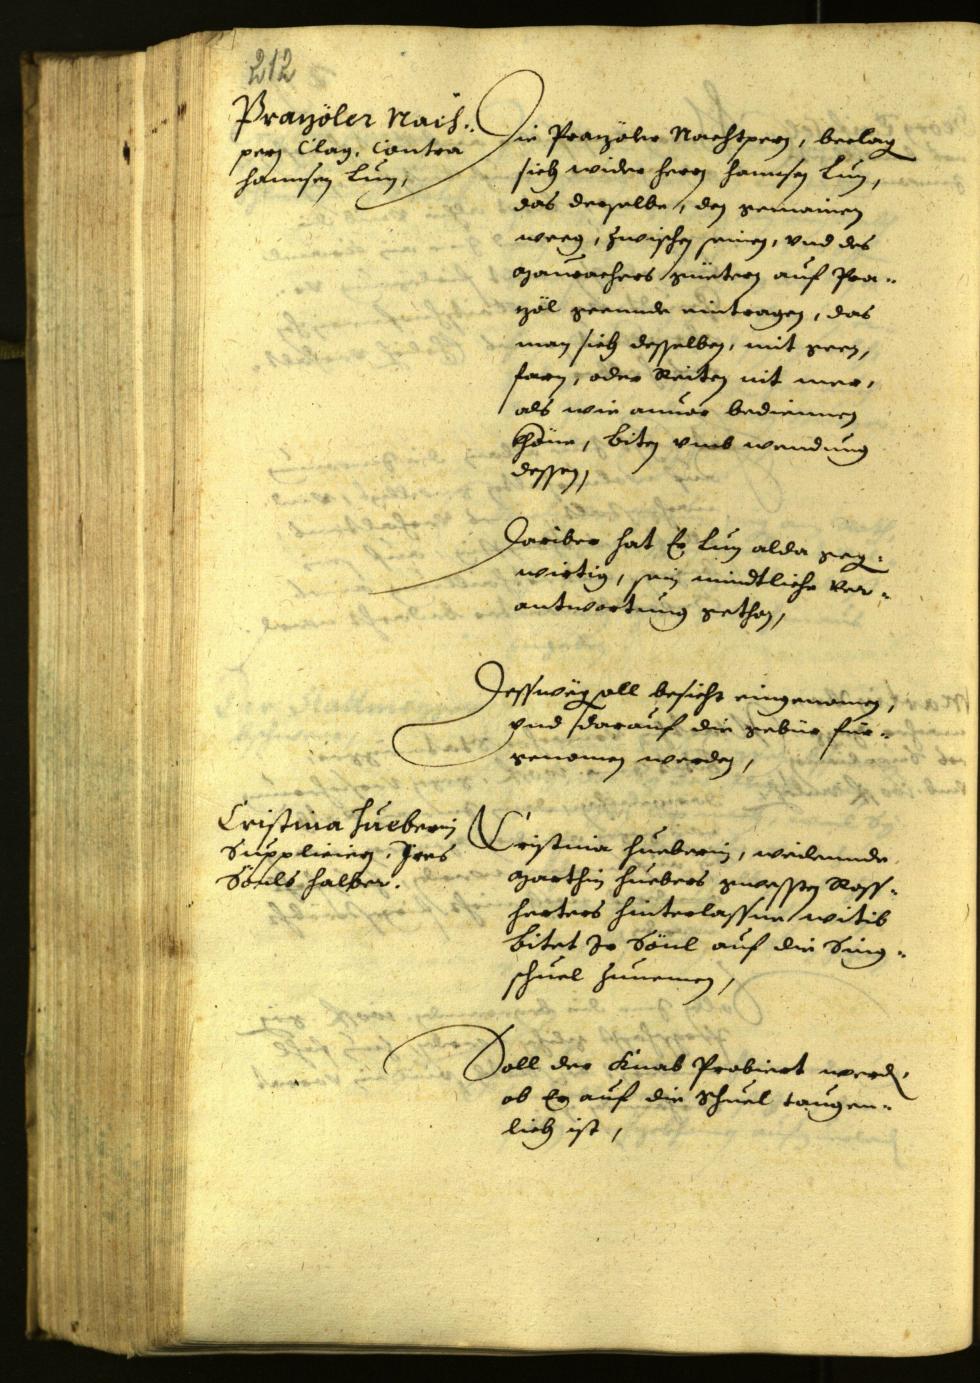 212
Prazöler Nach-
pern Clag, Contra
hannsen Lun,
Die Prazöler Nachtpern, beclag
sich wider herrn hannsen Lun,
das derselbe, den gemainen
weeg, zwischen seinen, und des
güetern auf Pra-
zöl eintragen, das
man sich desselben, mit geen,
farn, oder Reiten nit mer,
als wie annor bediennen
khöne, biten umb wendung
dessen,
Dariber hat Er Lun alda geg-
wirtig, sein mindtliche Ver-
antwortung gethon,
Dessweg soll besicht eingenomen,
und darauf die gebür für-
genomen werden,
Cristina Hueberin
Supplicien, Ires
Sönls halber.
Cristina Hueberin, weilennde
Marthin Huebers gwessten Ross-
herters hinterlassne witib
bitet Ir Sönl auf die Sing-
schuel zunemen,
Soll der Knab Probiert werd,
ob Er auf die Schuel taugen-
lich ist,